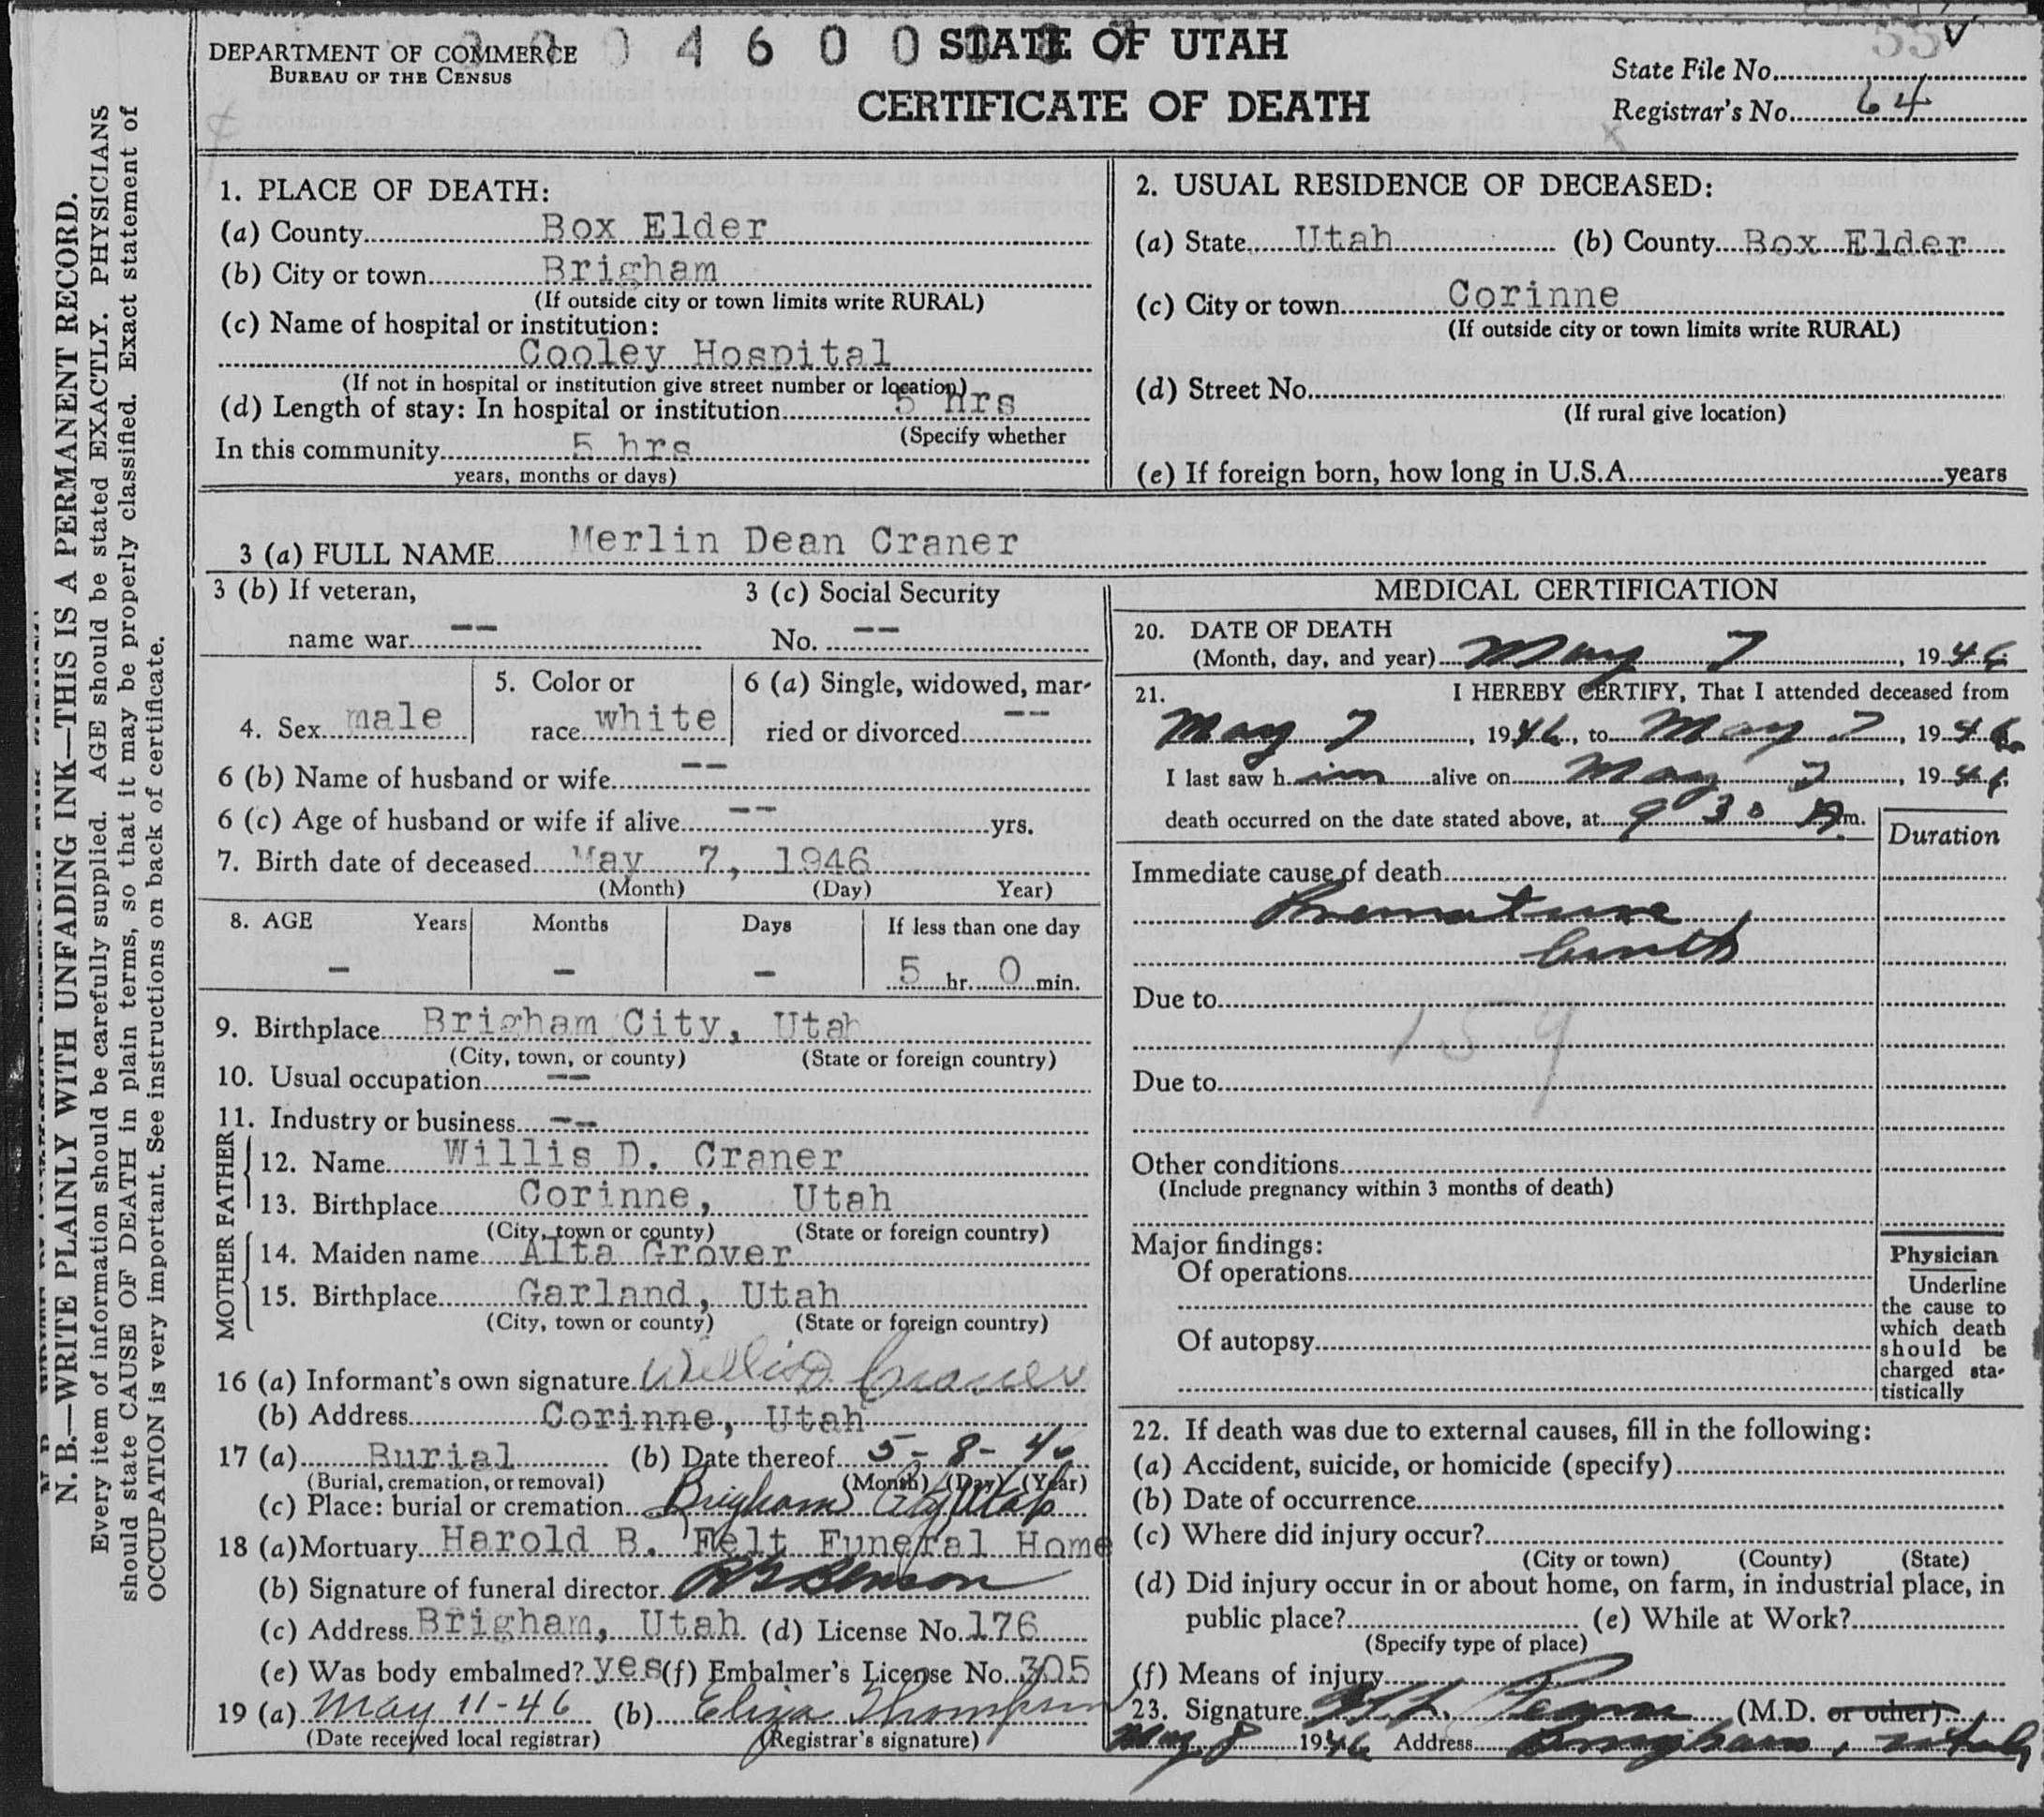 DEPARTMENT OF COMMERCE
BUREAU OF THE CENSUS
4 6 0 0
STATE OF UTAH
CERTIFICATE OF DEATH
State File No.
55 v
Registrar's No. 64
N. B.—WRITE PLAINLY WITH UNFADING INK—THIS IS A PERMANENT RECORD.
Every item of information should be carefully supplied. AGE should be stated EXACTLY. PHYSICIANS
should state CAUSE OF DEATH in plain terms, so that it may be properly classified. Exact statement of
OCCUPATION is very important. See instructions on back of certificate.
1. PLACE OF DEATH:
(a) County Box Elder
(b) City or town Brigham
(If outside city or town limits write RURAL)
(c) Name of hospital or institution:
Cooley Hospital
(If not in hospital or institution give street number or location)
(d) Length of stay: In hospital or institution 5 hrs
(Specify whether
In this community 5 hrs
years, months or days)
2. USUAL RESIDENCE OF DECEASED:
(a) State Utah (b) County Box Elder
(c) City or town Corinne
(If outside city or town limits write RURAL)
(d) Street No.
(If rural give location)
(e) If foreign born, how long in U.S.A. years
3 (a) FULL NAME Merlin Dean Craner
3 (b) If veteran, 3 (c) Social Security
name war -- No. --
4. Sex male 5. Color or race white 6 (a) Single, widowed, mar-
ried or divorced --
6 (b) Name of husband or wife --
6 (c) Age of husband or wife if alive -- yrs.
7. Birth date of deceased May 7, 1946
(Month) (Day) Year)
8. AGE Years Months Days If less than one day
- - - 5 hr. 0 min.
9. Birthplace Brigham City, Utah
(City, town, or county) (State or foreign country)
10. Usual occupation --
11. Industry or business ---
FATHER
12. Name Willis D. Craner
13. Birthplace Corinne, Utah
(City, town or county) (State or foreign country)
MOTHER
14. Maiden name Alta Grover
15. Birthplace Garland, Utah
(City, town or county) (State or foreign country)
16 (a) Informant's own signature Willis D. Craner
(b) Address Corinne, Utah
17 (a) Burial (b) Date thereof 5-8-46
(Burial, cremation, or removal) (Month) (Day) (Year)
(c) Place: burial or cremation Brigham City Utah
18 (a) Mortuary Harold B. Felt Funeral Home
(b) Signature of funeral director Benson
(c) Address Brigham, Utah (d) License No. 176
(e) Was body embalmed? yes (f) Embalmer's License No. 305
19 (a) May 11-46 (b) Eliza Thompson
(Date received local registrar) (Registrar's signature)
MEDICAL CERTIFICATION
20. DATE OF DEATH
(Month, day, and year) May 7, 1946
21. I HEREBY CERTIFY, That I attended deceased from
May 7, 1946, to May 7, 1946
I last saw him alive on May 7, 1946
death occurred on the date stated above, at 9 30 A m.
Duration
Immediate cause of death
Premature
birth
Due to
159
Due to
Other conditions
(Include pregnancy within 3 months of death)
Major findings:
Of operations
Of autopsy
Physician
Underline
the cause to
which death
should be
charged sta-
tistically
22. If death was due to external causes, fill in the following:
(a) Accident, suicide, or homicide (specify)
(b) Date of occurrence
(c) Where did injury occur?
(City or town) (County) (State)
(d) Did injury occur in or about home, on farm, in industrial place, in
public place? (e) While at Work?
(Specify type of place)
(f) Means of injury
23. Signature (M.D. or other)
May 8 1946 Address Brigham, Utah